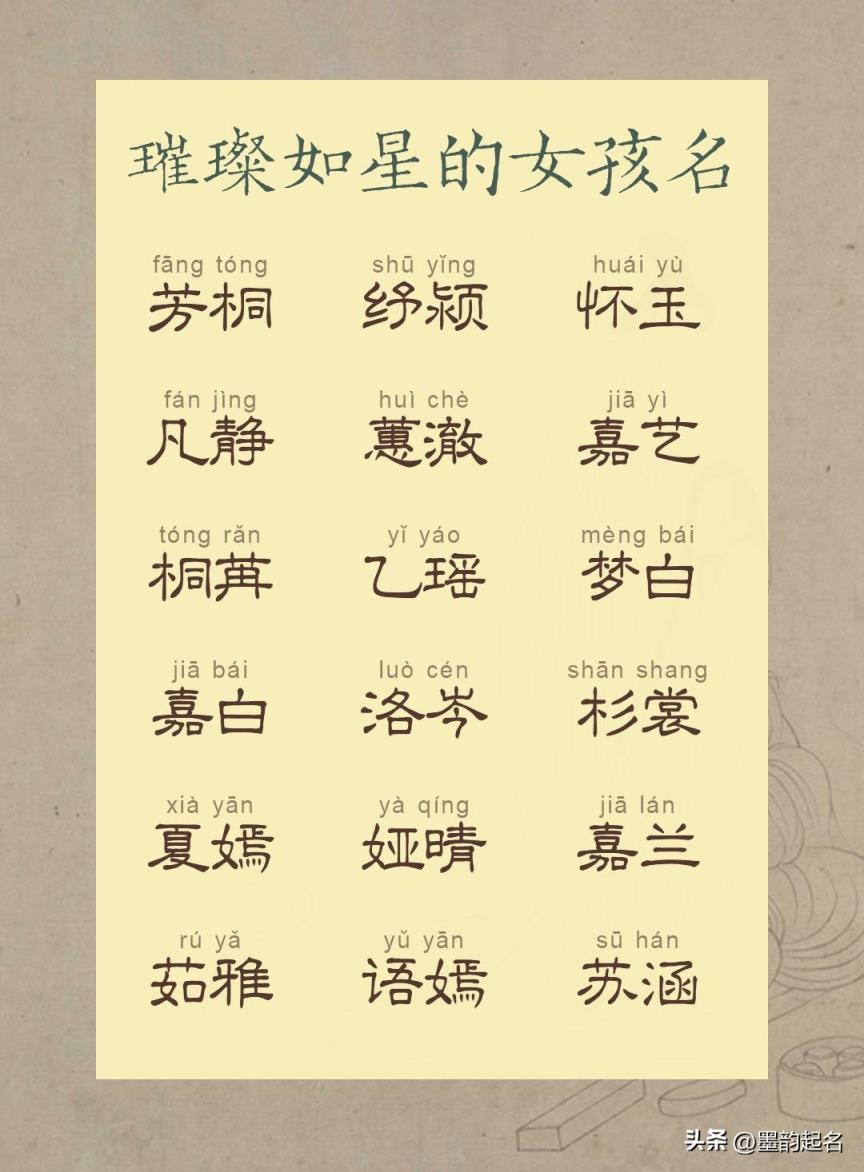 璀璨如星的女孩名
fāng tóng shū yǐng huái yù
芳桐 纾颍 怀玉
fán jìng huì chè jiā yì
凡静 蕙澈 嘉艺
tóng rǎn yǐ yáo mèng bái
桐苒 乙瑶 梦白
jiā bái luò cén shān shang
嘉白 洛岑 杉裳
xià yān yà qíng jiā lán
夏嫣 娅晴 嘉兰
rú yǎ yǔ yān sū hán
茹雅 语嫣 苏涵
头条 @墨韵起名